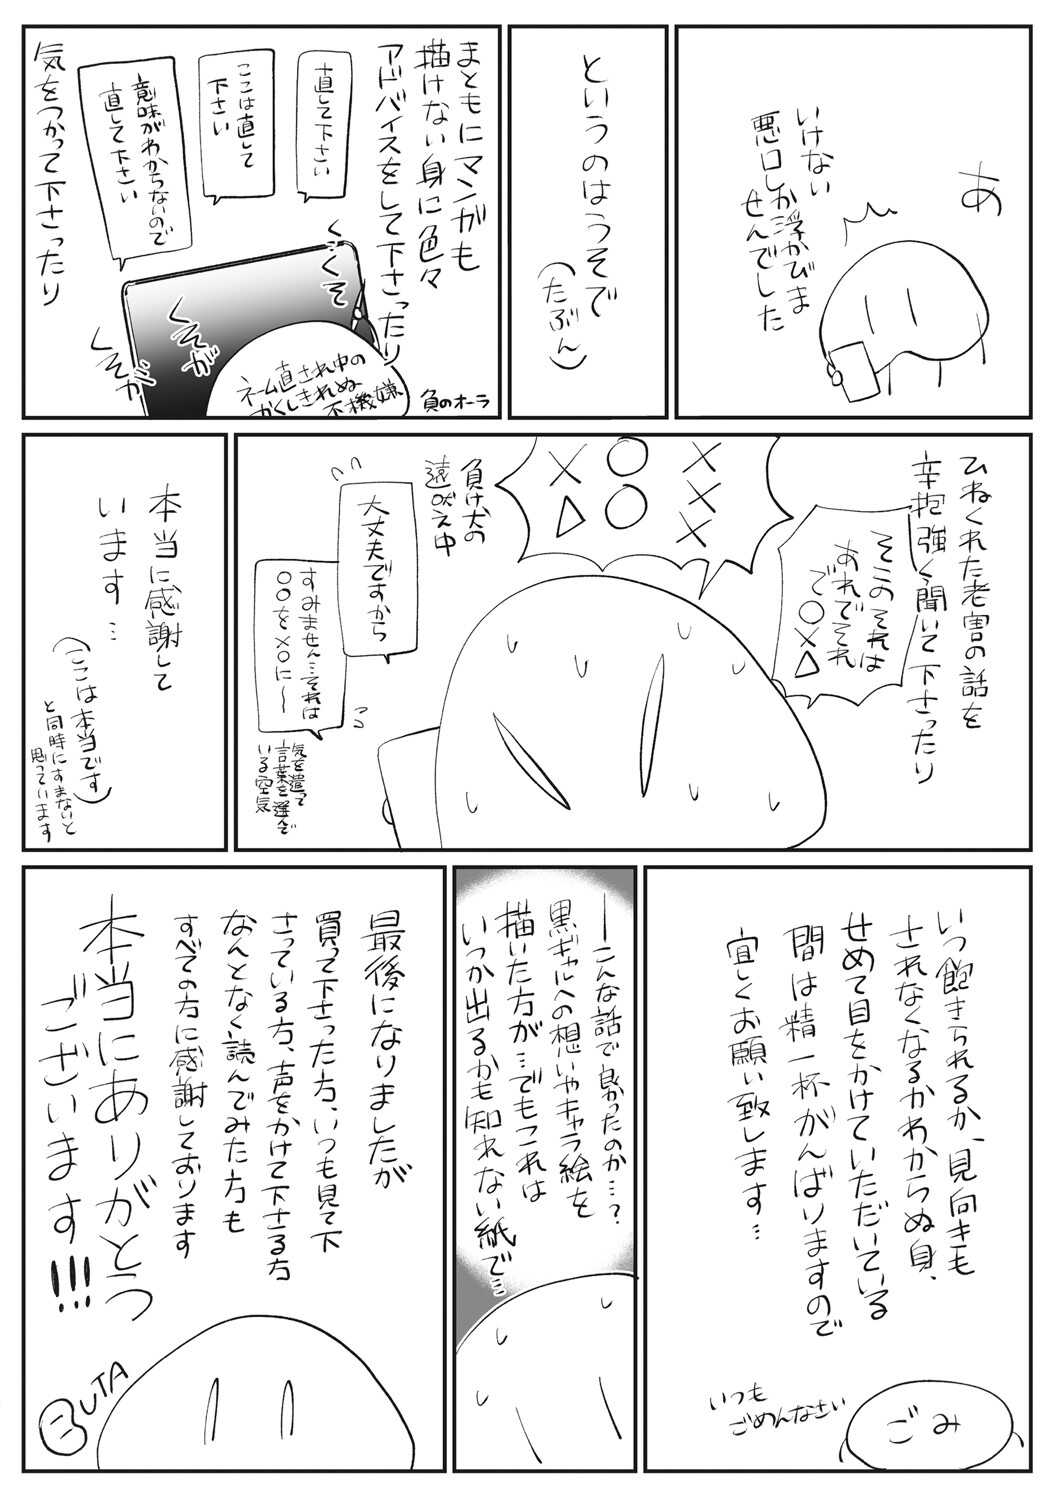 あ
いけない
悪口しか浮かびま
せんでした
というのはうそで
(たぶん)
まともにマンガも
描けない身に色々
アドバイスをして下さったり
直して下さい
ここは直して
下さい
意味がわからないので
直して下さい
気をつかって下さったり
くっそ
くそが
くそが
ネーム直され中の
かくしきれぬ
不機嫌
負のオーラ
ひねくれた老害の話を
辛抱強く聞いて下さったり
そこのそれは
あれでそれ
で○×△
×××
○○
×△
負け犬の
遠吠え中
大丈夫ですから
すみません…それは
○○を×○に〜
気を遣って
言葉を選んで
いる空気
本当に感謝して
います…
(ここは本当です)
と同時にすまないと
思っています
いつ飽きられるか、見向きも
されなくなるかわからぬ身、
せめて目をかけていただいている
間は精一杯がんばりますので
宜しくお願い致します…
ごみ
いつも
ごめんなさい
―こんな話で良かったのか…?
黒ギャルへの想いやキャラ絵を
描いた方が…でもこれは
いつか出るかも知れない紙で…
最後になりましたが
買って下さった方、いつも見て下
さっている方、声をかけて下さる方
なんとなく読んでみた方も
すべての方に感謝しております
本当にありがとう
ございます!!!
BUTA